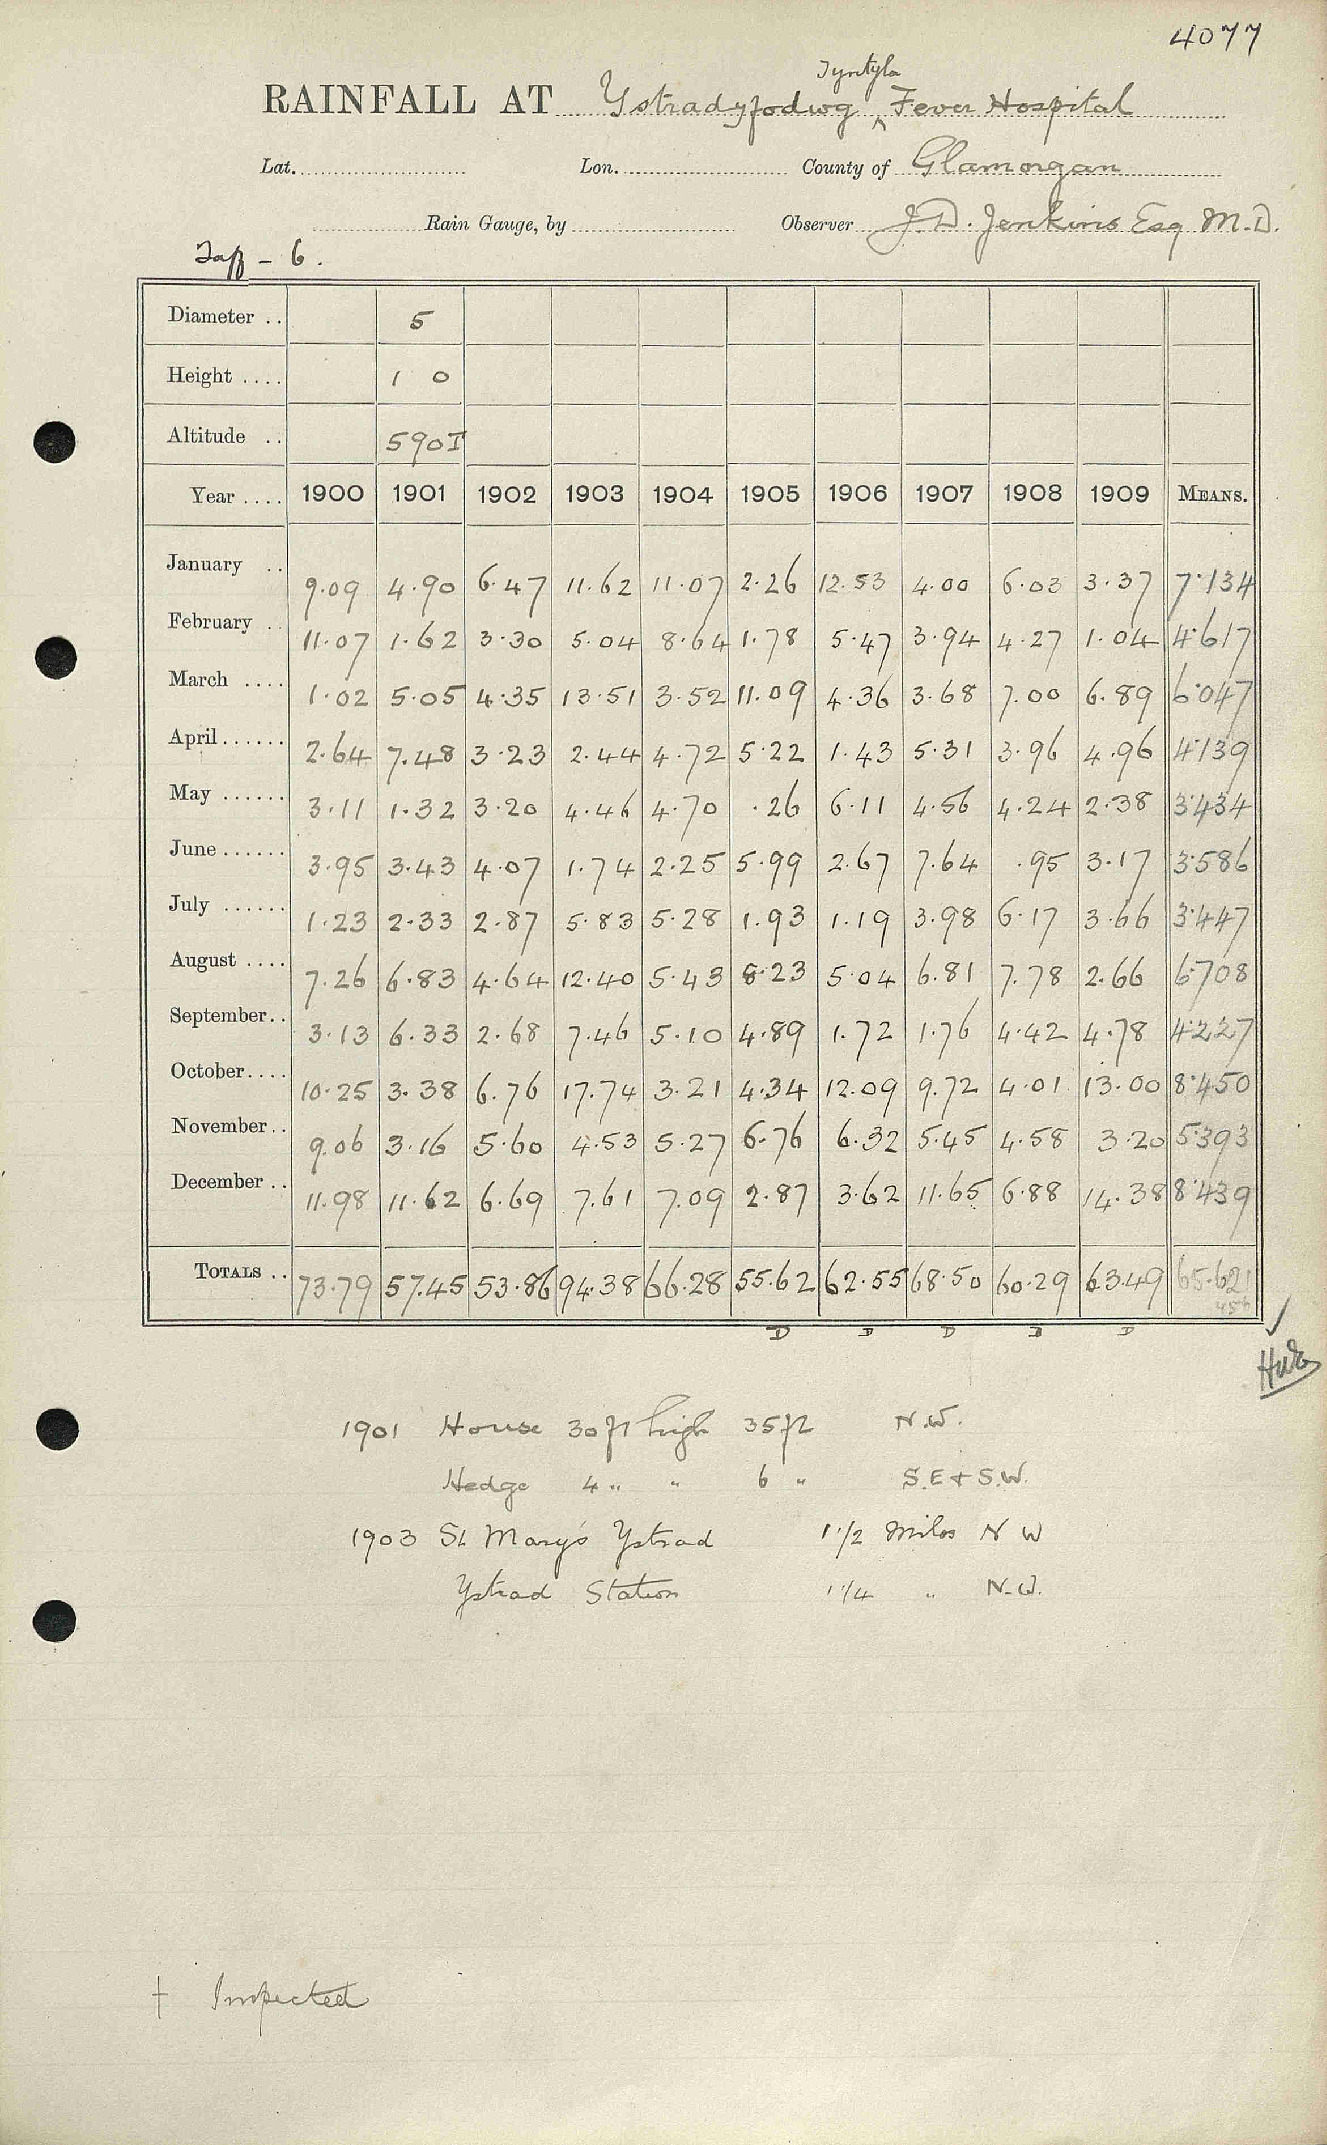 4077
Tyntyla
RAINFALL AT Ystradyfodwg ^ Fever Hospital
Lat. Lon. County of Glamorgan
Rain Gauge, by Observer J. D. Jenkins Esq M.D.
Taff - 6.
Diameter .. 5
Height .... 1 0
Altitude .. 590T
Year .... 1900 1901 1902 1903 1904 1905 1906 1907 1908 1909 MEANS.
January .. 9.09 4.90 6.47 11.62 11.07 2.26 12.53 4.00 6.03 3.37 7.134
February .. 11.07 1.62 3.30 5.04 8.64 1.78 5.47 3.94 4.27 1.04 4.617
March .... 1.02 5.05 4.35 13.51 3.52 11.09 4.36 3.68 7.00 6.89 6.047
April...... 2.64 7.48 3.23 2.44 4.72 5.22 1.43 5.31 3.96 4.96 4.139
May ...... 3.11 1.32 3.20 4.46 4.70 .26 6.11 4.56 4.24 2.38 3.434
June ...... 3.95 3.43 4.07 1.74 2.25 5.99 2.67 7.64 .95 3.17 3.586
July ...... 1.23 2.33 2.87 5.83 5.28 1.93 1.19 3.98 6.17 3.66 3.447
August .... 7.26 6.83 4.64 12.40 5.43 8.23 5.04 6.81 7.78 2.66 6.708
September.. 3.13 6.33 2.68 7.46 5.10 4.89 1.72 1.76 4.42 4.78 4.227
October.... 10.25 3.38 6.76 17.74 3.21 4.34 12.09 9.72 4.01 13.00 8.450
November.. 9.06 3.16 5.60 4.53 5.27 6.76 6.32 5.45 4.58 3.20 5.393
December .. 11.98 11.62 6.69 7.61 7.09 2.87 3.62 11.65 6.88 14.38 8.439
TOTALS .. 73.79 57.45 53.86 94.38 66.28 55.62 62.55 68.50 60.29 63.49 65.621
D D D D D
1901 House 30 ft high 35 ft N.W.
Hedge 4 " " 6 " S.E + S.W.
1903 St Mary's Ystrad 1 1/2 Miles N W
Ystrad Station 1 1/4 " N.W.
† Inspected